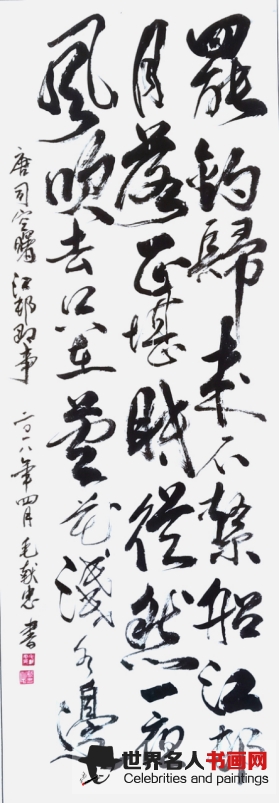 罷釣歸来不繫船江邨
月落正堪眠縱然一夜
風吹去只在蘆花淺水邊
唐司空曙江邨即事 二〇一八年四月毛献忠書
世界名人书画网
Celebrities and paintings